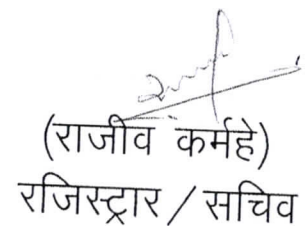 (राजीव कर्महे)
रजिस्ट्रार / सचिव